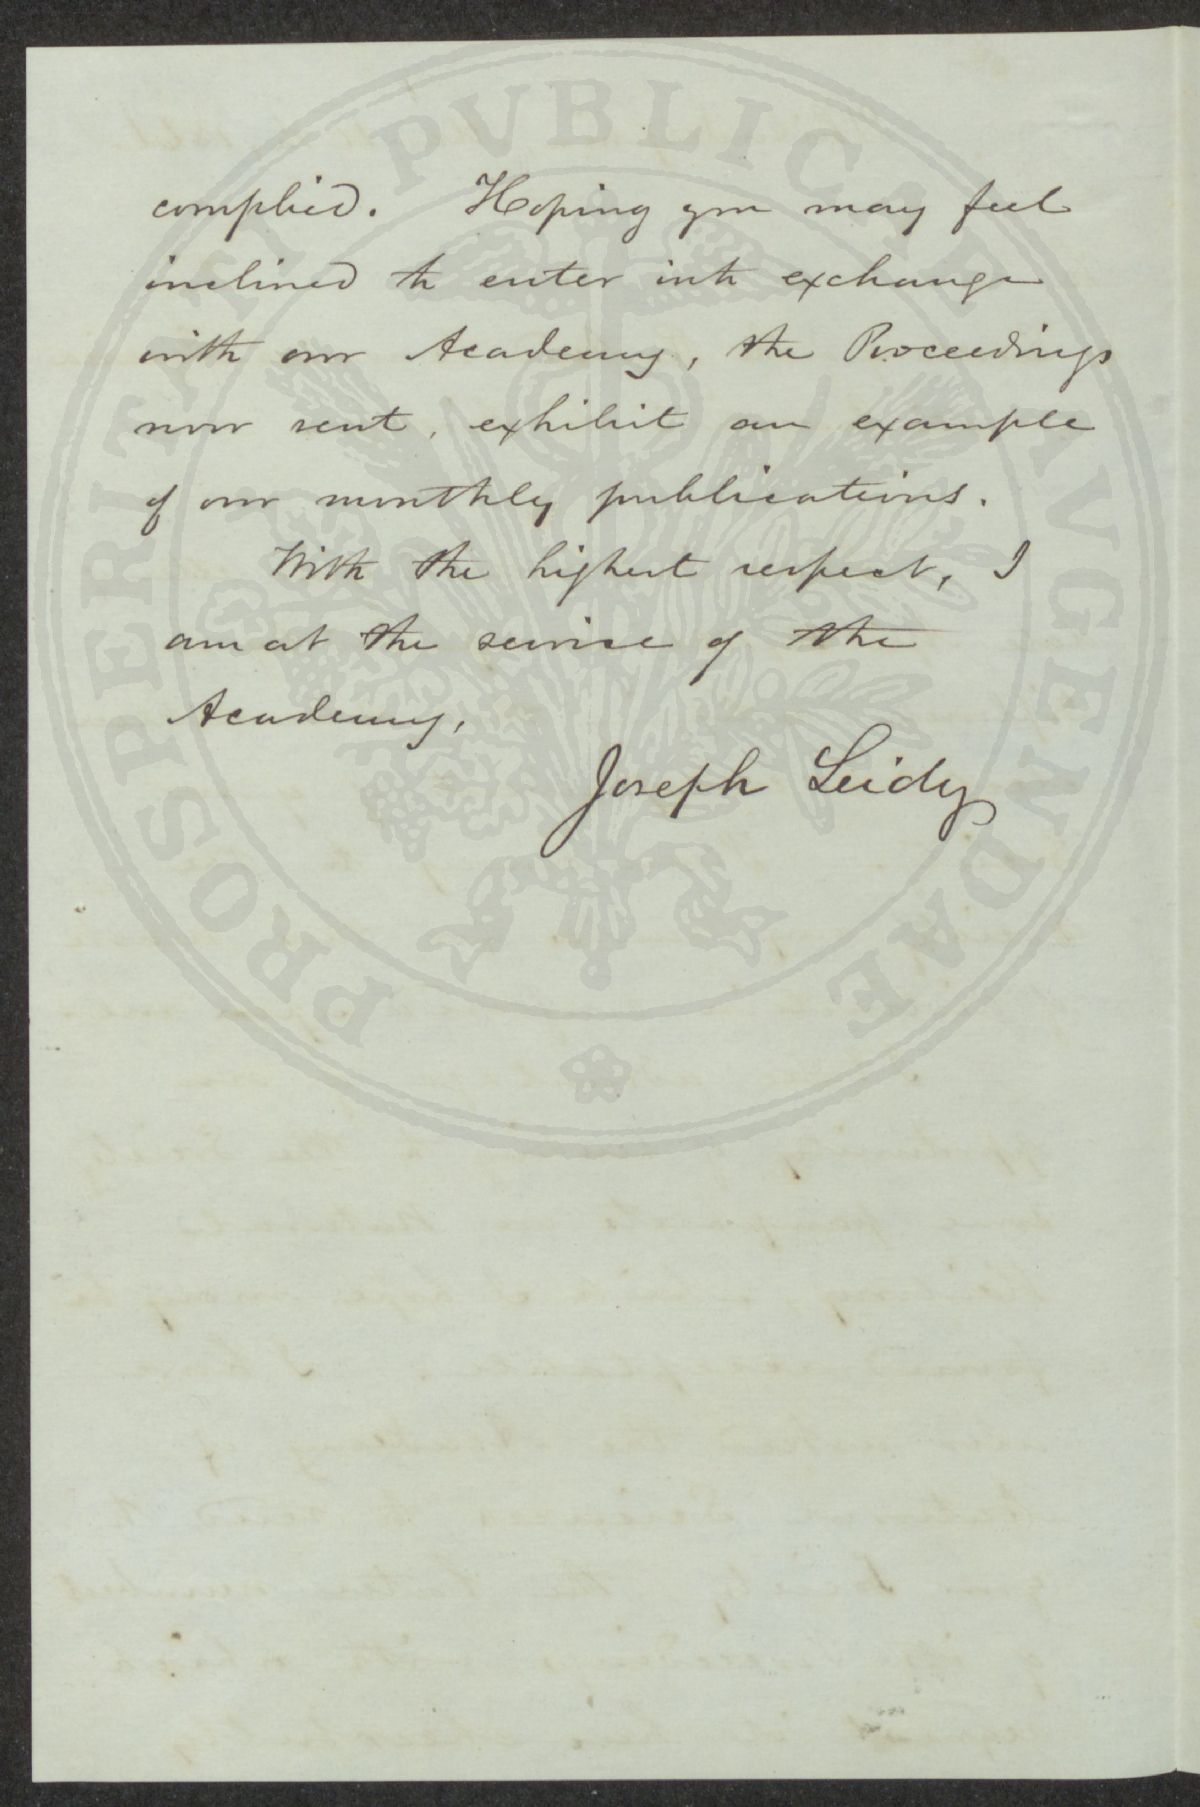 complied. Hoping you may feel
inclined to enter into exchange
with our Academy, the Proceedings
now sent, exhibit an example
of our monthly publications.
With the highest respect, I
am at the service of the
Academy,
Joseph Leidy
PROSPERITATI PVBLICAE AVGENDAE